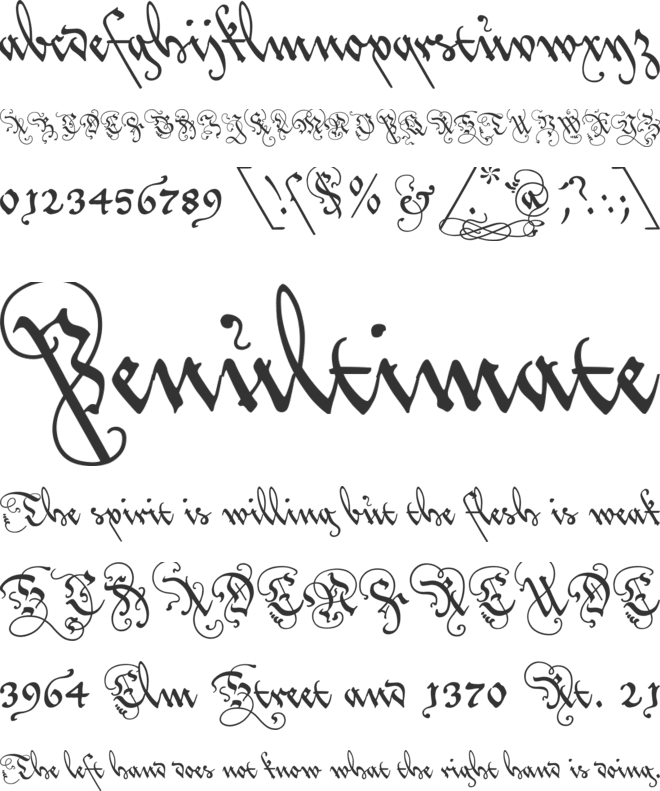 abcdefghijklmnopqrstuvwxyz
ABCDEFGHIJKLMNOPQRSTUVWXYZ
0123456789 [!$% & .*@;?:.;]
Penultimate
The spirit is willing but the flesh is weak
SCHADENFREUDE
3964 Elm Street and 1370 Rt. 21
The left hand does not know what the right hand is doing.